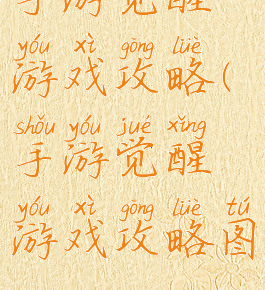 手游觉醒
yóu xì gōng lüè
游戏攻略(
shǒu yóu jué xǐng
手游觉醒
yóu xì gōng lüè tú
游戏攻略图